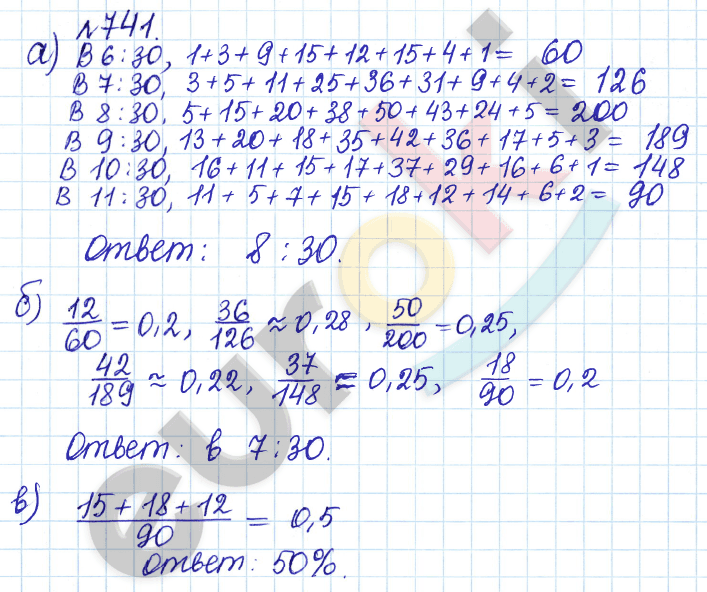 №741.
а) В 6:30, 1+3+9+15+12+15+4+1= 60
В 7:30, 3+5+11+25+36+31+9+4+2= 126
В 8:30, 5+15+20+38+50+43+24+5= 200
В 9:30, 13+20+18+35+42+36+17+5+3= 189
В 10:30, 16+11+15+17+37+29+16+6+1= 148
В 11:30, 11+5+7+15+18+12+14+6+2= 90
Ответ: 8:30.
б) 12/60 = 0,2, 36/126 ≈ 0,28, 50/200 = 0,25,
42/189 ≈ 0,22, 37/148 = 0,25, 18/90 = 0,2
Ответ: в 7:30.
в) (15+18+12)/90 = 0,5
Ответ: 50%.
euroki